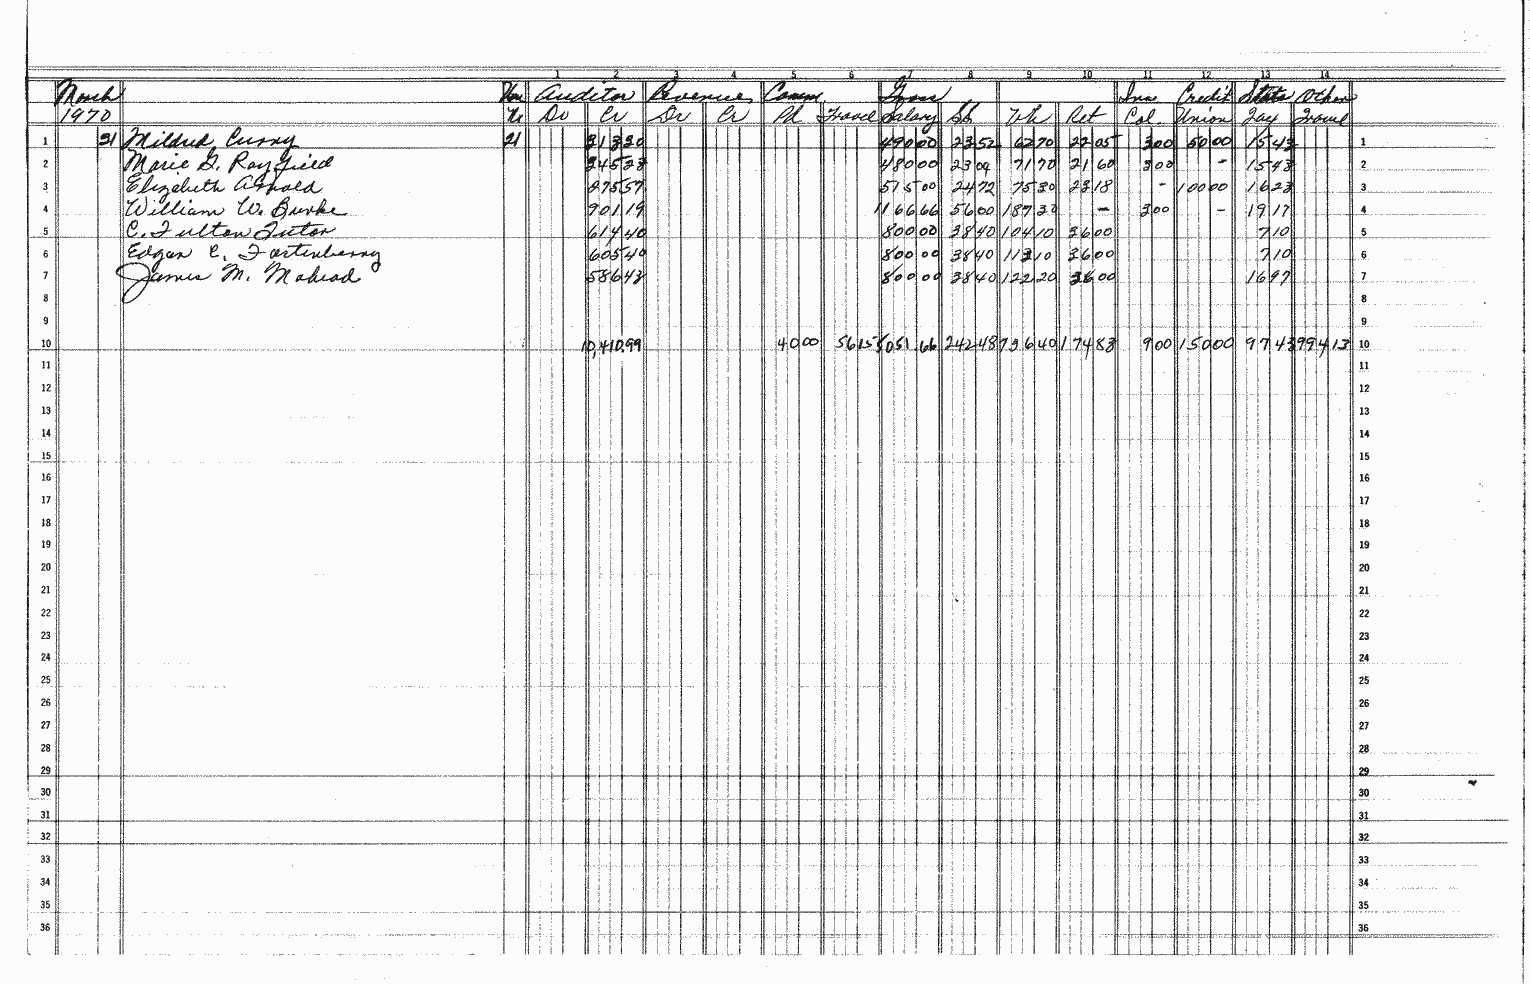 1 2 3 4 5 6 7 8 9 10 11 12 13 14
March Auditor Revenue Comm Gross Ins Credit State Other
1970 Dr Cr Dr Cr Pd Travel Salary SS W/h Ret Col. Union Tax Travel
1 31 Mildred Curry 21 313 20 490 00 23 52 62 70 22 05 3 00 50 00 15 43 1
2 Marie G. Rayfield 345 23 480 00 23 04 71 70 21 60 3 00 - 15 43 2
3 Elizabeth Arnold 275 57 515 00 24 72 75 30 23 18 - 100 00 16 23 3
4 William W. Burke 901 19 1166 66 56 00 187 30 - 3 00 - 19 17 4
5 C. Fulton Tutor 614 40 800 00 38 40 104 10 36 00 7 10 5
6 Edgar C. Fortenberry 605 40 800 00 38 40 113 10 36 00 7 10 6
7 James M. Mohead 586 43 800 00 38 40 122 20 36 00 16 97 7
8 8
9 9
10 10,410.99 40 00 56 15 5051.66 242 48 736 40 174 83 9 00 150 00 97 43 994 13 10
11 11
12 12
13 13
14 14
15 15
16 16
17 17
18 18
19 19
20 20
21 21
22 22
23 23
24 24
25 25
26 26
27 27
28 28
29 29
30 30
31 31
32 32
33 33
34 34
35 35
36 36